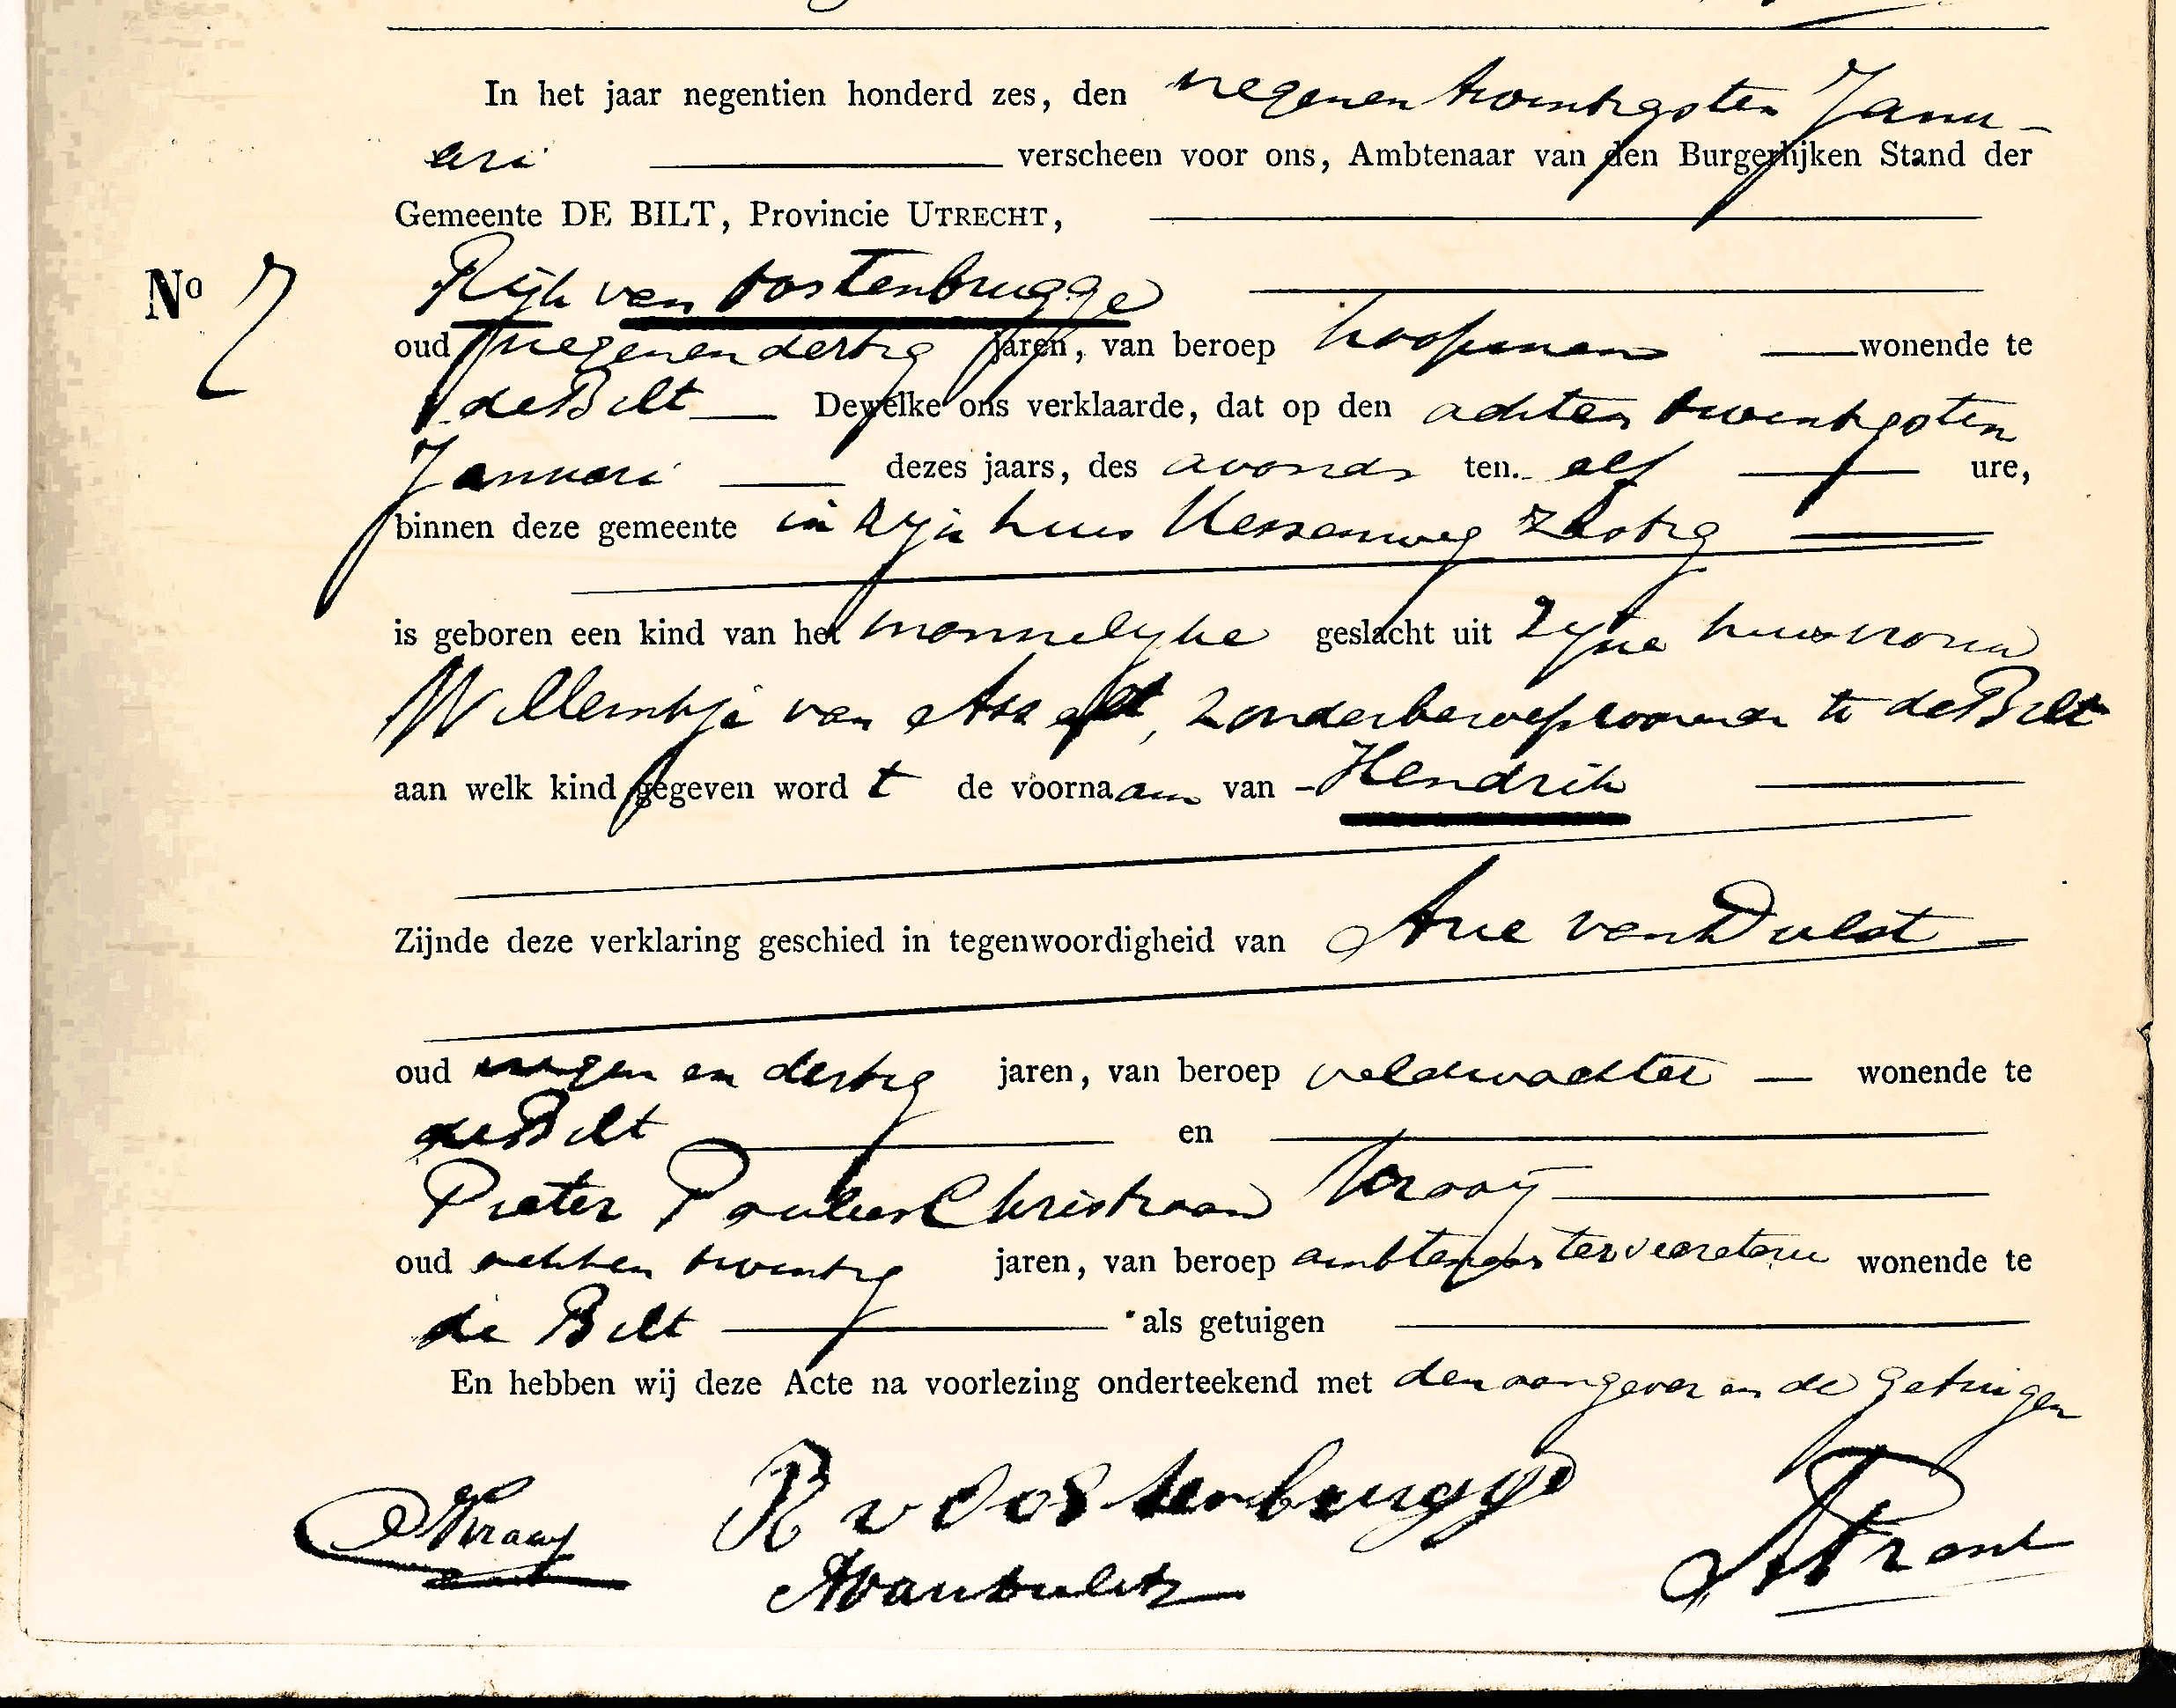 In het jaar negentien honderd zes, den negenentwintigsten Janu-
ari verscheen voor ons, Ambtenaar van den Burgerlijken Stand der
Gemeente DE BILT, Provincie UTRECHT,
No 7 Rijk van Oostenbrugge
oud negenendertig jaren, van beroep koopman wonende te
de Bilt Dewelke ons verklaarde, dat op den achtentwintigsten
Januari dezes jaars, des avonds ten elf ure,
binnen deze gemeente in zijn huis Hessenweg zestig
is geboren een kind van het mannelijke geslacht uit zijne huisvrouw
Willemtje van Asselt, zonder beroep wonende te de Bilt
aan welk kind gegeven wordt de voornaam van Hendrik
Zijnde deze verklaring geschied in tegenwoordigheid van Arie van
oud negen en dertig jaren, van beroep veldwachter wonende te
de Bilt en
Pieter Paulus Christiaan Kraaij
oud achtentwintig jaren, van beroep ambtenaar ter secretarie wonende te
de Bilt als getuigen
En hebben wij deze Acte na voorlezing onderteekend met den aangever en de getuigen
Kraaij R v Oostenbrugge